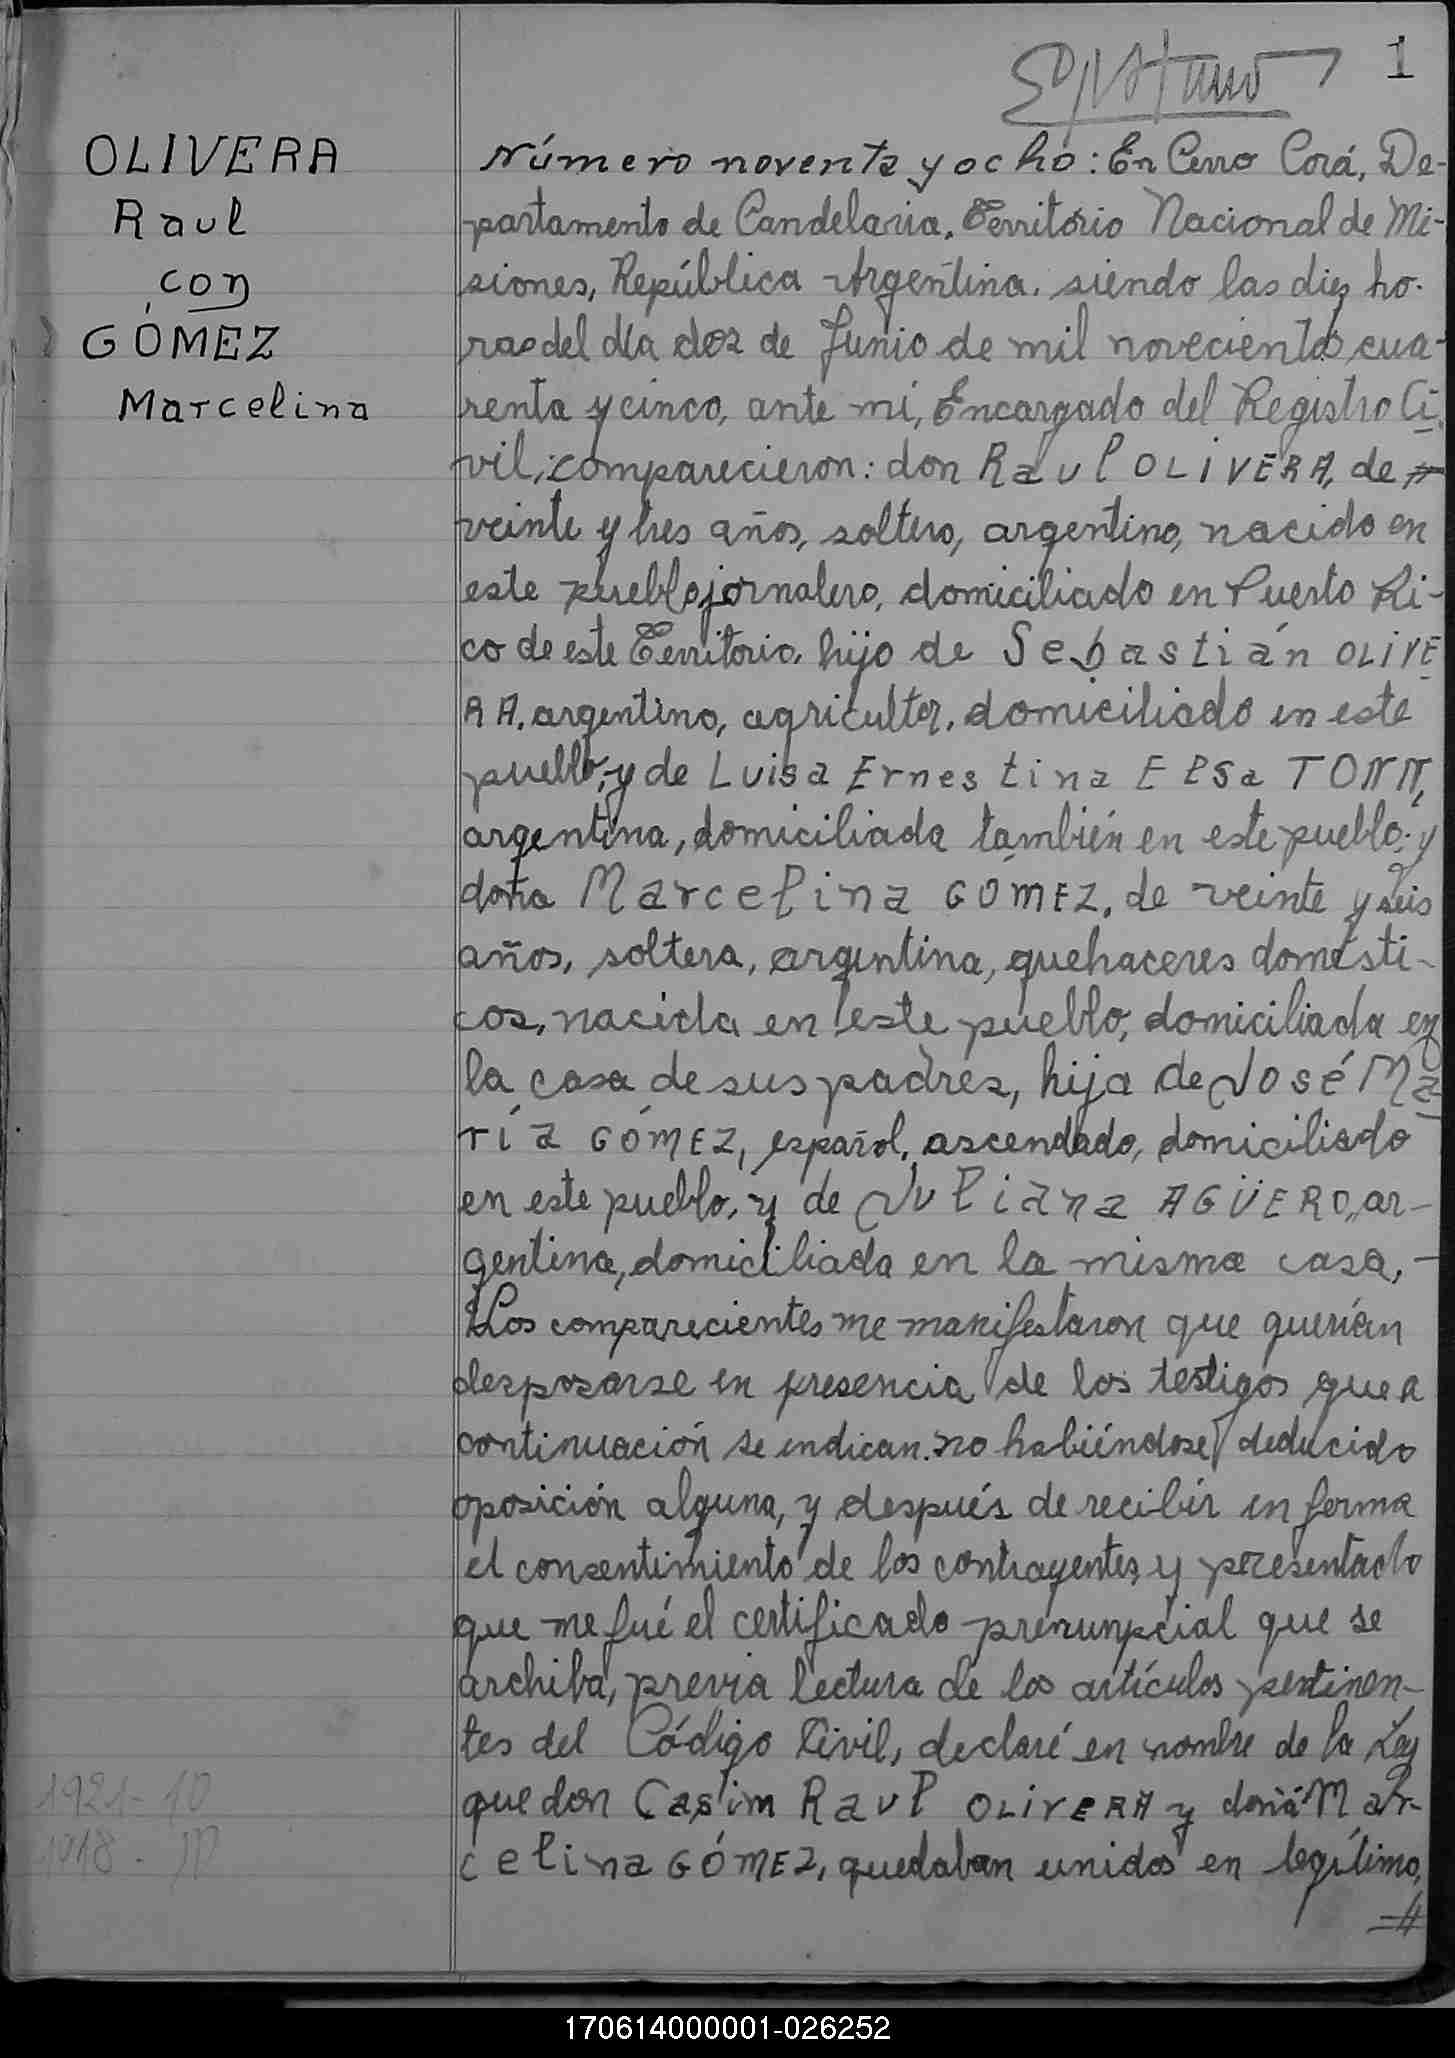 1
OLIVERA
Raul
con
GÓMEZ
Marcelina
Número noventa y ocho: En Cerro Corá, De-
partamento de Candelaria, Territorio Nacional de Mi-
siones, República Argentina, siendo las diez ho-
ras del día dos de Junio de mil novecientos cua-
renta y cinco, ante mi, Encargado del Registro Ci-
vil, comparecieron: don Raul OLIVERA, de
veinte y tres años, soltero, argentino, nacido en
este pueblo, jornalero, domiciliado en Puerto Ri-
co de este Territorio, hijo de Sebastián OLIVE
RA, argentino, agricultor, domiciliado en este
pueblo, y de Luisa Ernestina Elsa TONN,
argentina, domiciliada también en este pueblo; y
doña Marcelina GÓMEZ, de veinte y seis
años, soltera, argentina, quehaceres domésti-
cos, nacida en este pueblo, domiciliada en
la casa de sus padres, hija de José Ma
ría GÓMEZ, español, ascendado, domiciliado
en este pueblo, y de Juliana AGÜERO, ar-
gentina, domiciliada en la misma casa, -
Los comparecientes me manifestaron que querían
desposarse en presencia de los testigos que a
continuación se indican. no habiéndose deducido
oposición alguna, y después de recibir en forma
el consentimiento de los contrayentes, y presentado
que me fué el certificado prenunpcial que se
archiba, previa lectura de los artículos pertinen-
tes del Código Civil, declaré en nombre de la Ley
que don Casim Raul OLIVERA y doña Mar-
celina GÓMEZ, quedaban unidos en legítimo,
1921-10
1918.
170614000001-026252